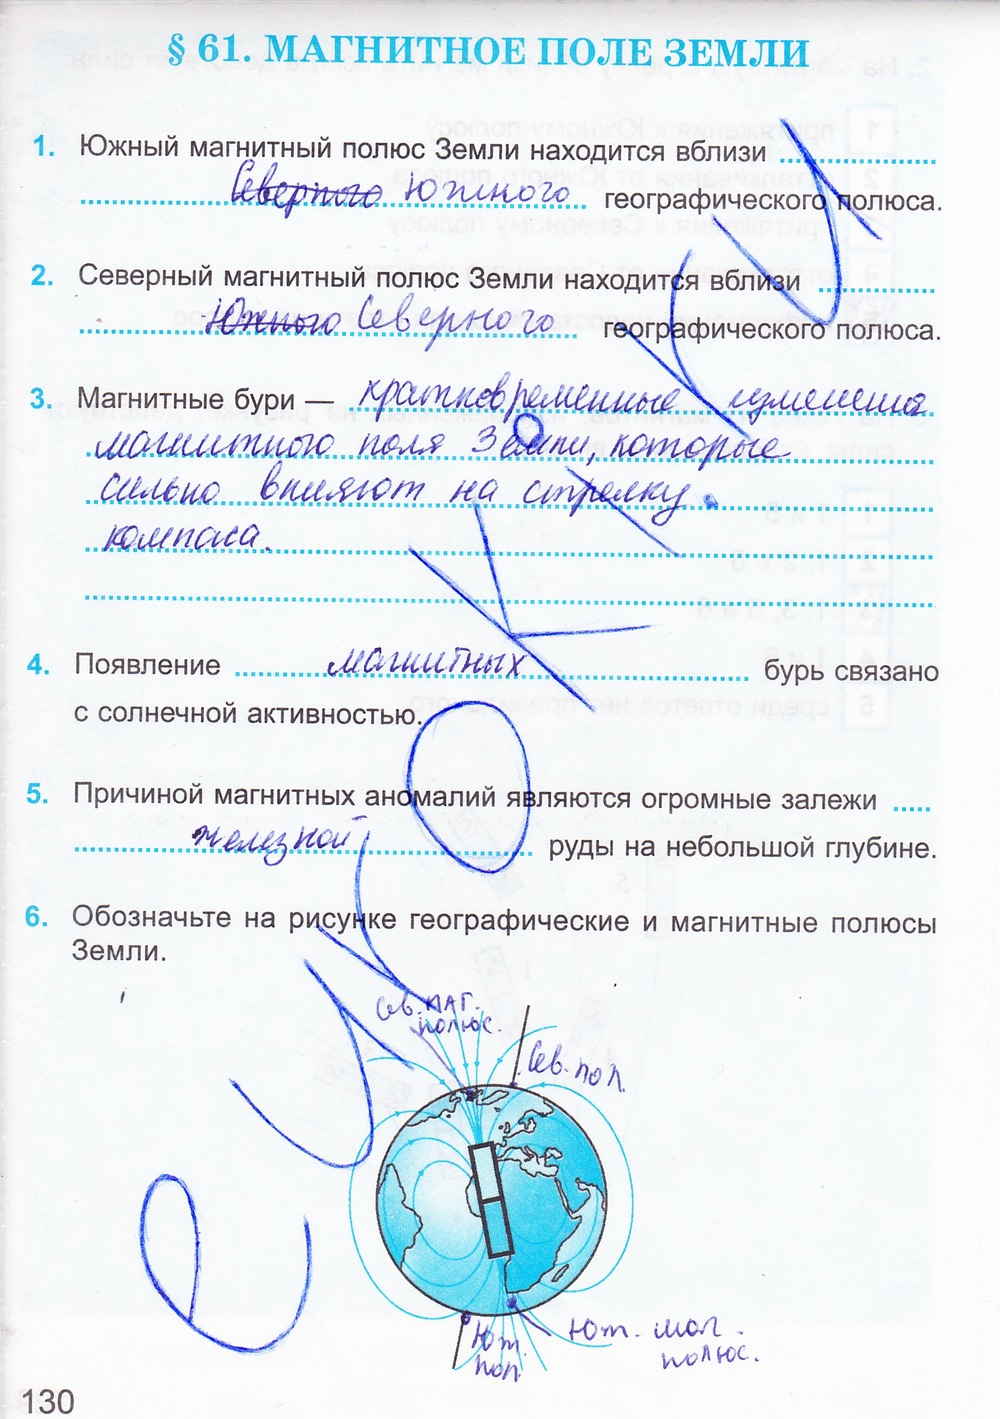 § 61. МАГНИТНОЕ ПОЛЕ ЗЕМЛИ
1. Южный магнитный полюс Земли находится вблизи
Северного Южного географического полюса.
2. Северный магнитный полюс Земли находится вблизи
Южного Северного географического полюса.
3. Магнитные бури — кратковременные изменения
магнитного поля Земли, которые
сильно влияют на стрелку
компаса.
4. Появление магнитных бурь связано
с солнечной активностью.
5. Причиной магнитных аномалий являются огромные залежи
железной руды на небольшой глубине.
6. Обозначьте на рисунке географические и магнитные полюсы
Земли.
Сев. маг.
полюс.
Сев. пол.
Юж.
пол.
Юж. маг.
полюс.
130